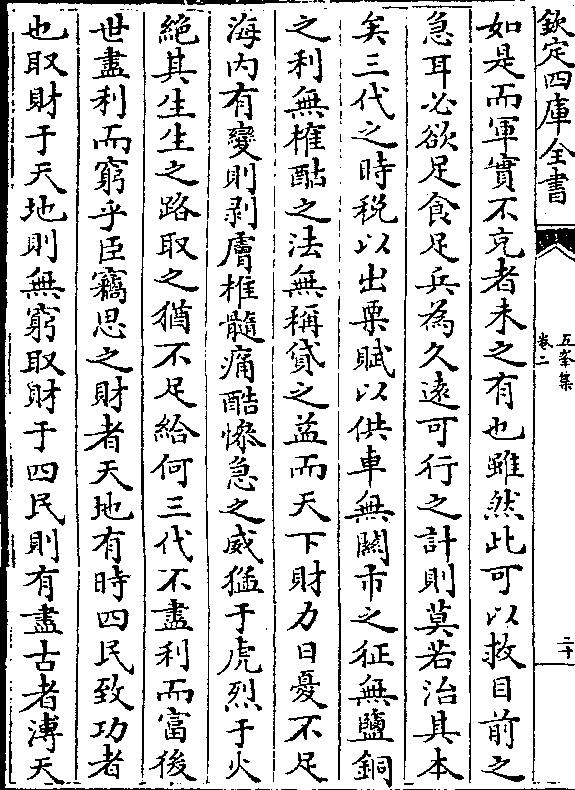 欽定四庫全書
五峯集
卷二
二十
如是而軍實不充者未之有也雖然此可以救目前之
急耳必欲足食足兵為久遠可行之計則莫若治其本
矣三代之時税以出粟賦以供車無關市之征無鹽銅
之利無榷酤之法無稱貸之益而天下財力日憂不足
海内有變則剥膚椎髓痛酷慘急之威猛于虎烈于火
絶其生生之路取之猶不足給何三代不盡利而富後
世盡利而窮乎臣竊思之財者天地有時四民致功者
也取財于天地則無窮取財于四民則有盡古者溥天